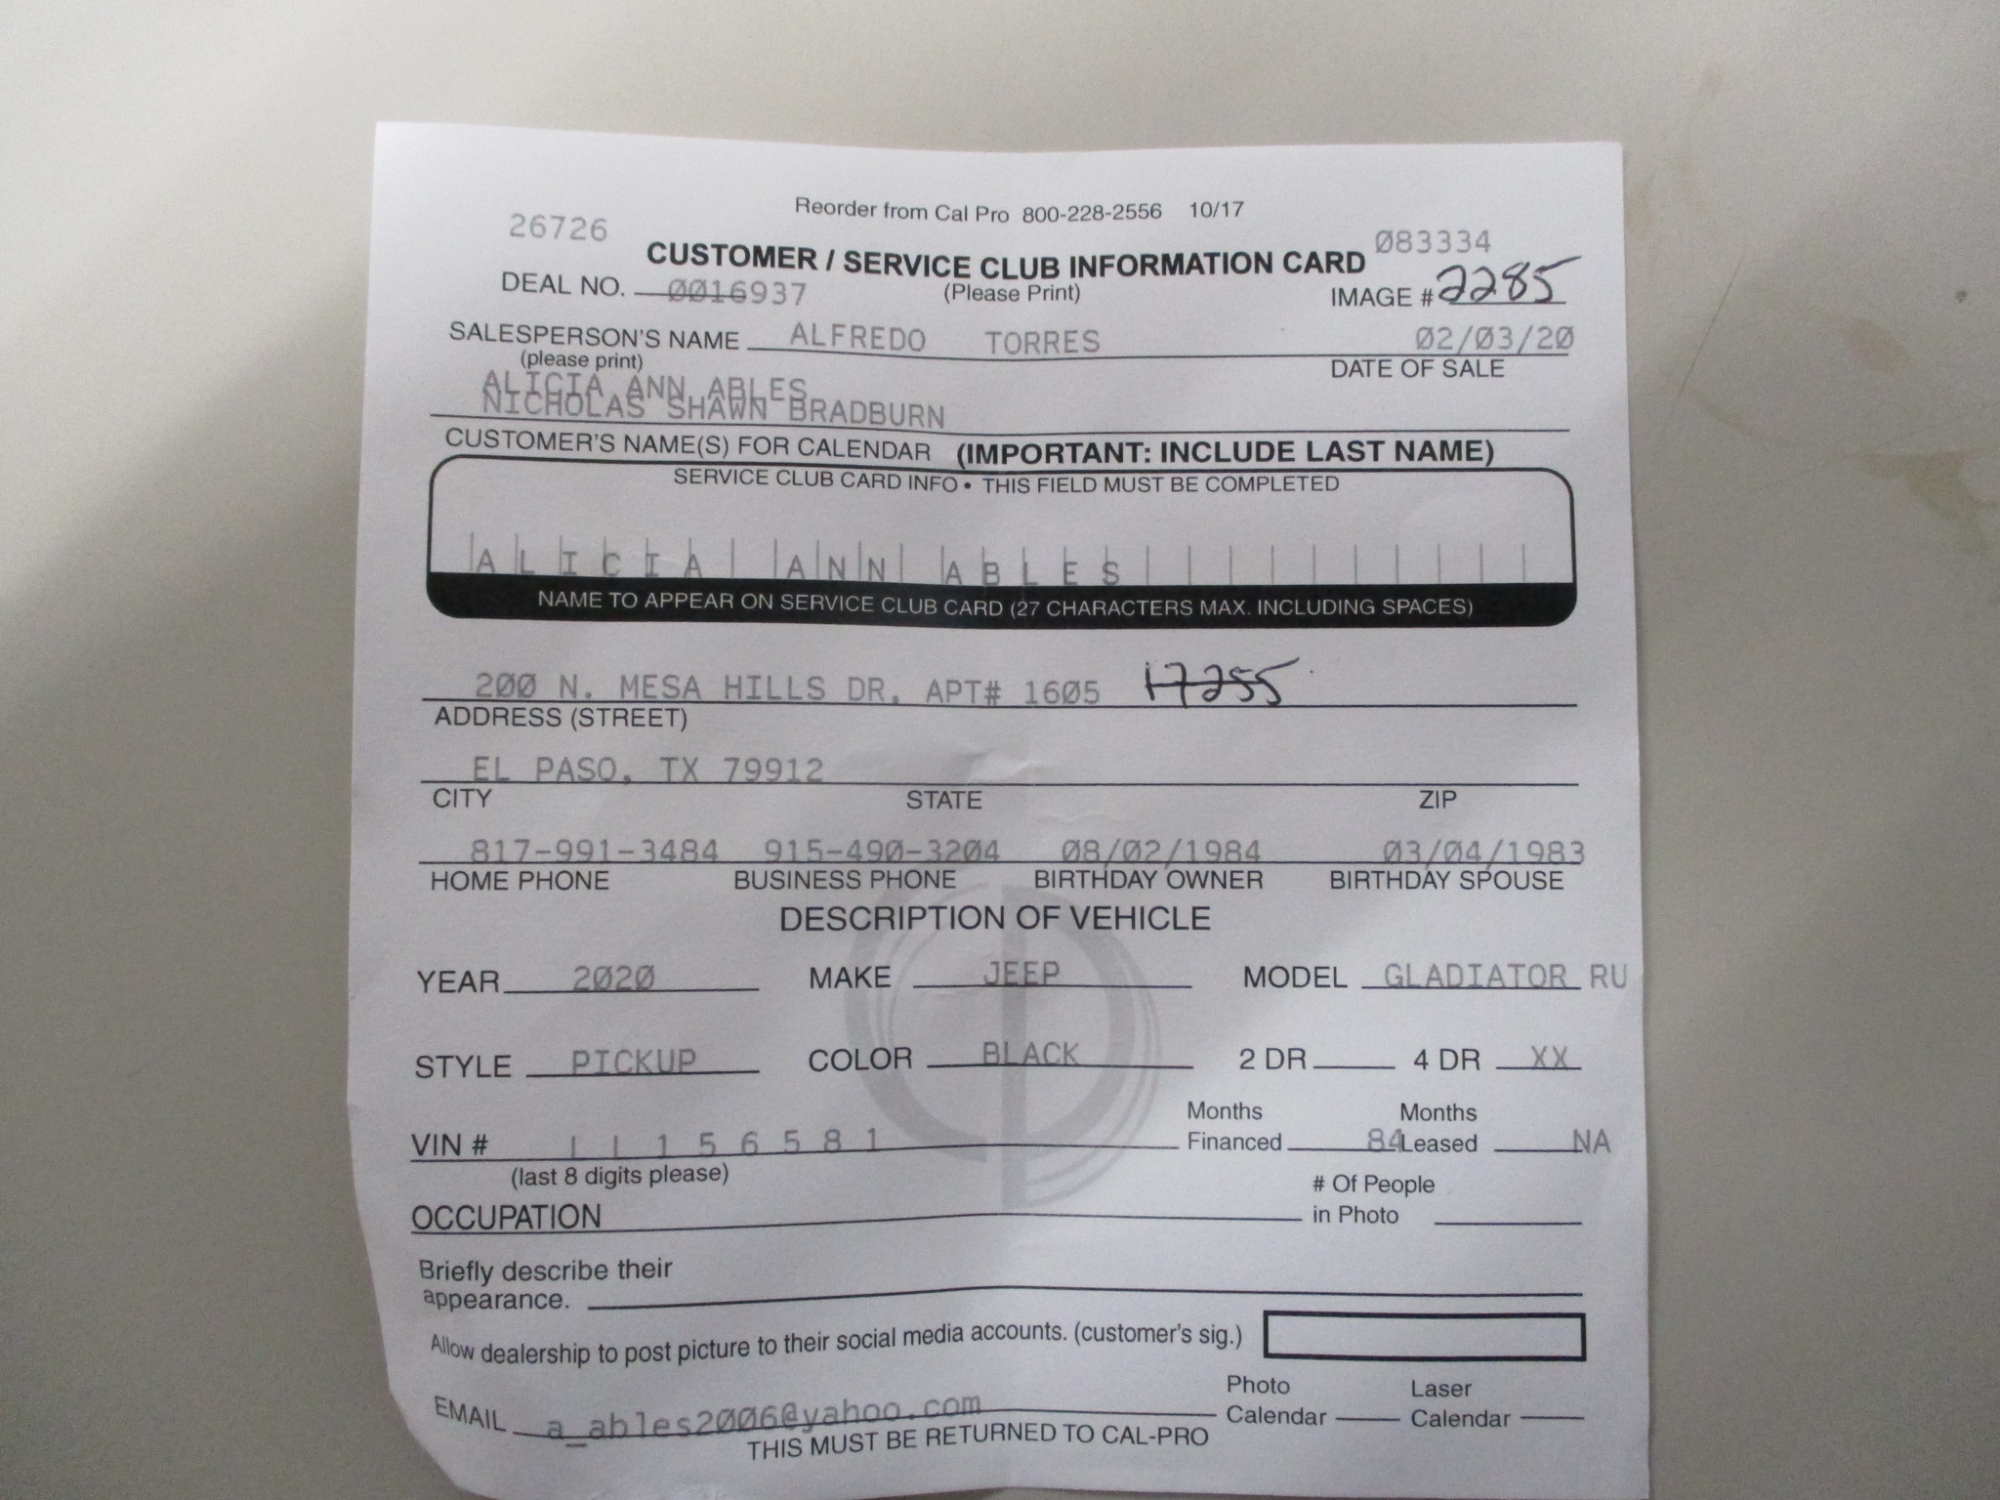 Reorder from Cal Pro 800-228-2556 10/17
26726 083334
CUSTOMER / SERVICE CLUB INFORMATION CARD
DEAL NO. 0016937 (Please Print) IMAGE # 2285
SALESPERSON'S NAME ALFREDO TORRES 02/03/20
(please print) DATE OF SALE
ALICIA ANN ABLES
NICHOLAS SHAWN BRADBURN
CUSTOMER'S NAME(S) FOR CALENDAR (IMPORTANT: INCLUDE LAST NAME)
SERVICE CLUB CARD INFO • THIS FIELD MUST BE COMPLETED
ALICIA ANN ABLES
NAME TO APPEAR ON SERVICE CLUB CARD (27 CHARACTERS MAX. INCLUDING SPACES)
200 N. MESA HILLS DR. APT# 1605 17255
ADDRESS (STREET)
EL PASO, TX 79912
CITY STATE ZIP
817-991-3484 915-490-3204 08/02/1984 03/04/1983
HOME PHONE BUSINESS PHONE BIRTHDAY OWNER BIRTHDAY SPOUSE
DESCRIPTION OF VEHICLE
YEAR 2020 MAKE JEEP MODEL GLADIATOR RU
STYLE PICKUP COLOR BLACK 2 DR 4 DR XX
Months Months
VIN # LL156581 Financed 84 Leased NA
(last 8 digits please)
# Of People
OCCUPATION in Photo
Briefly describe their
appearance.
Allow dealership to post picture to their social media accounts. (customer's sig.)
Photo Laser
EMAIL a_ables2006@yahoo.com Calendar Calendar
THIS MUST BE RETURNED TO CAL-PRO